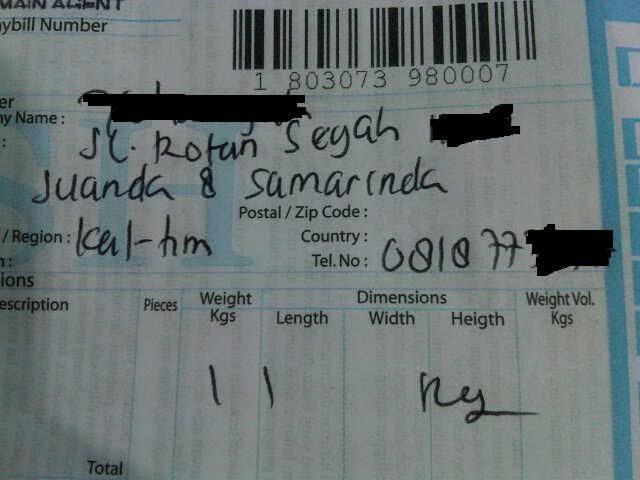 MAIN AGENT
aybill Number
1 803073 980007
er
ny Name :
: Jl. Rotan Segah
Juanda 8 Samarinda
Postal / Zip Code :
/ Region : Kal-tim Country :
n : Tel. No : 081877
ions
escription Pieces Weight Kgs Dimensions Weight Vol. Kgs
Length Width Heigth
1 1 Kg
Total